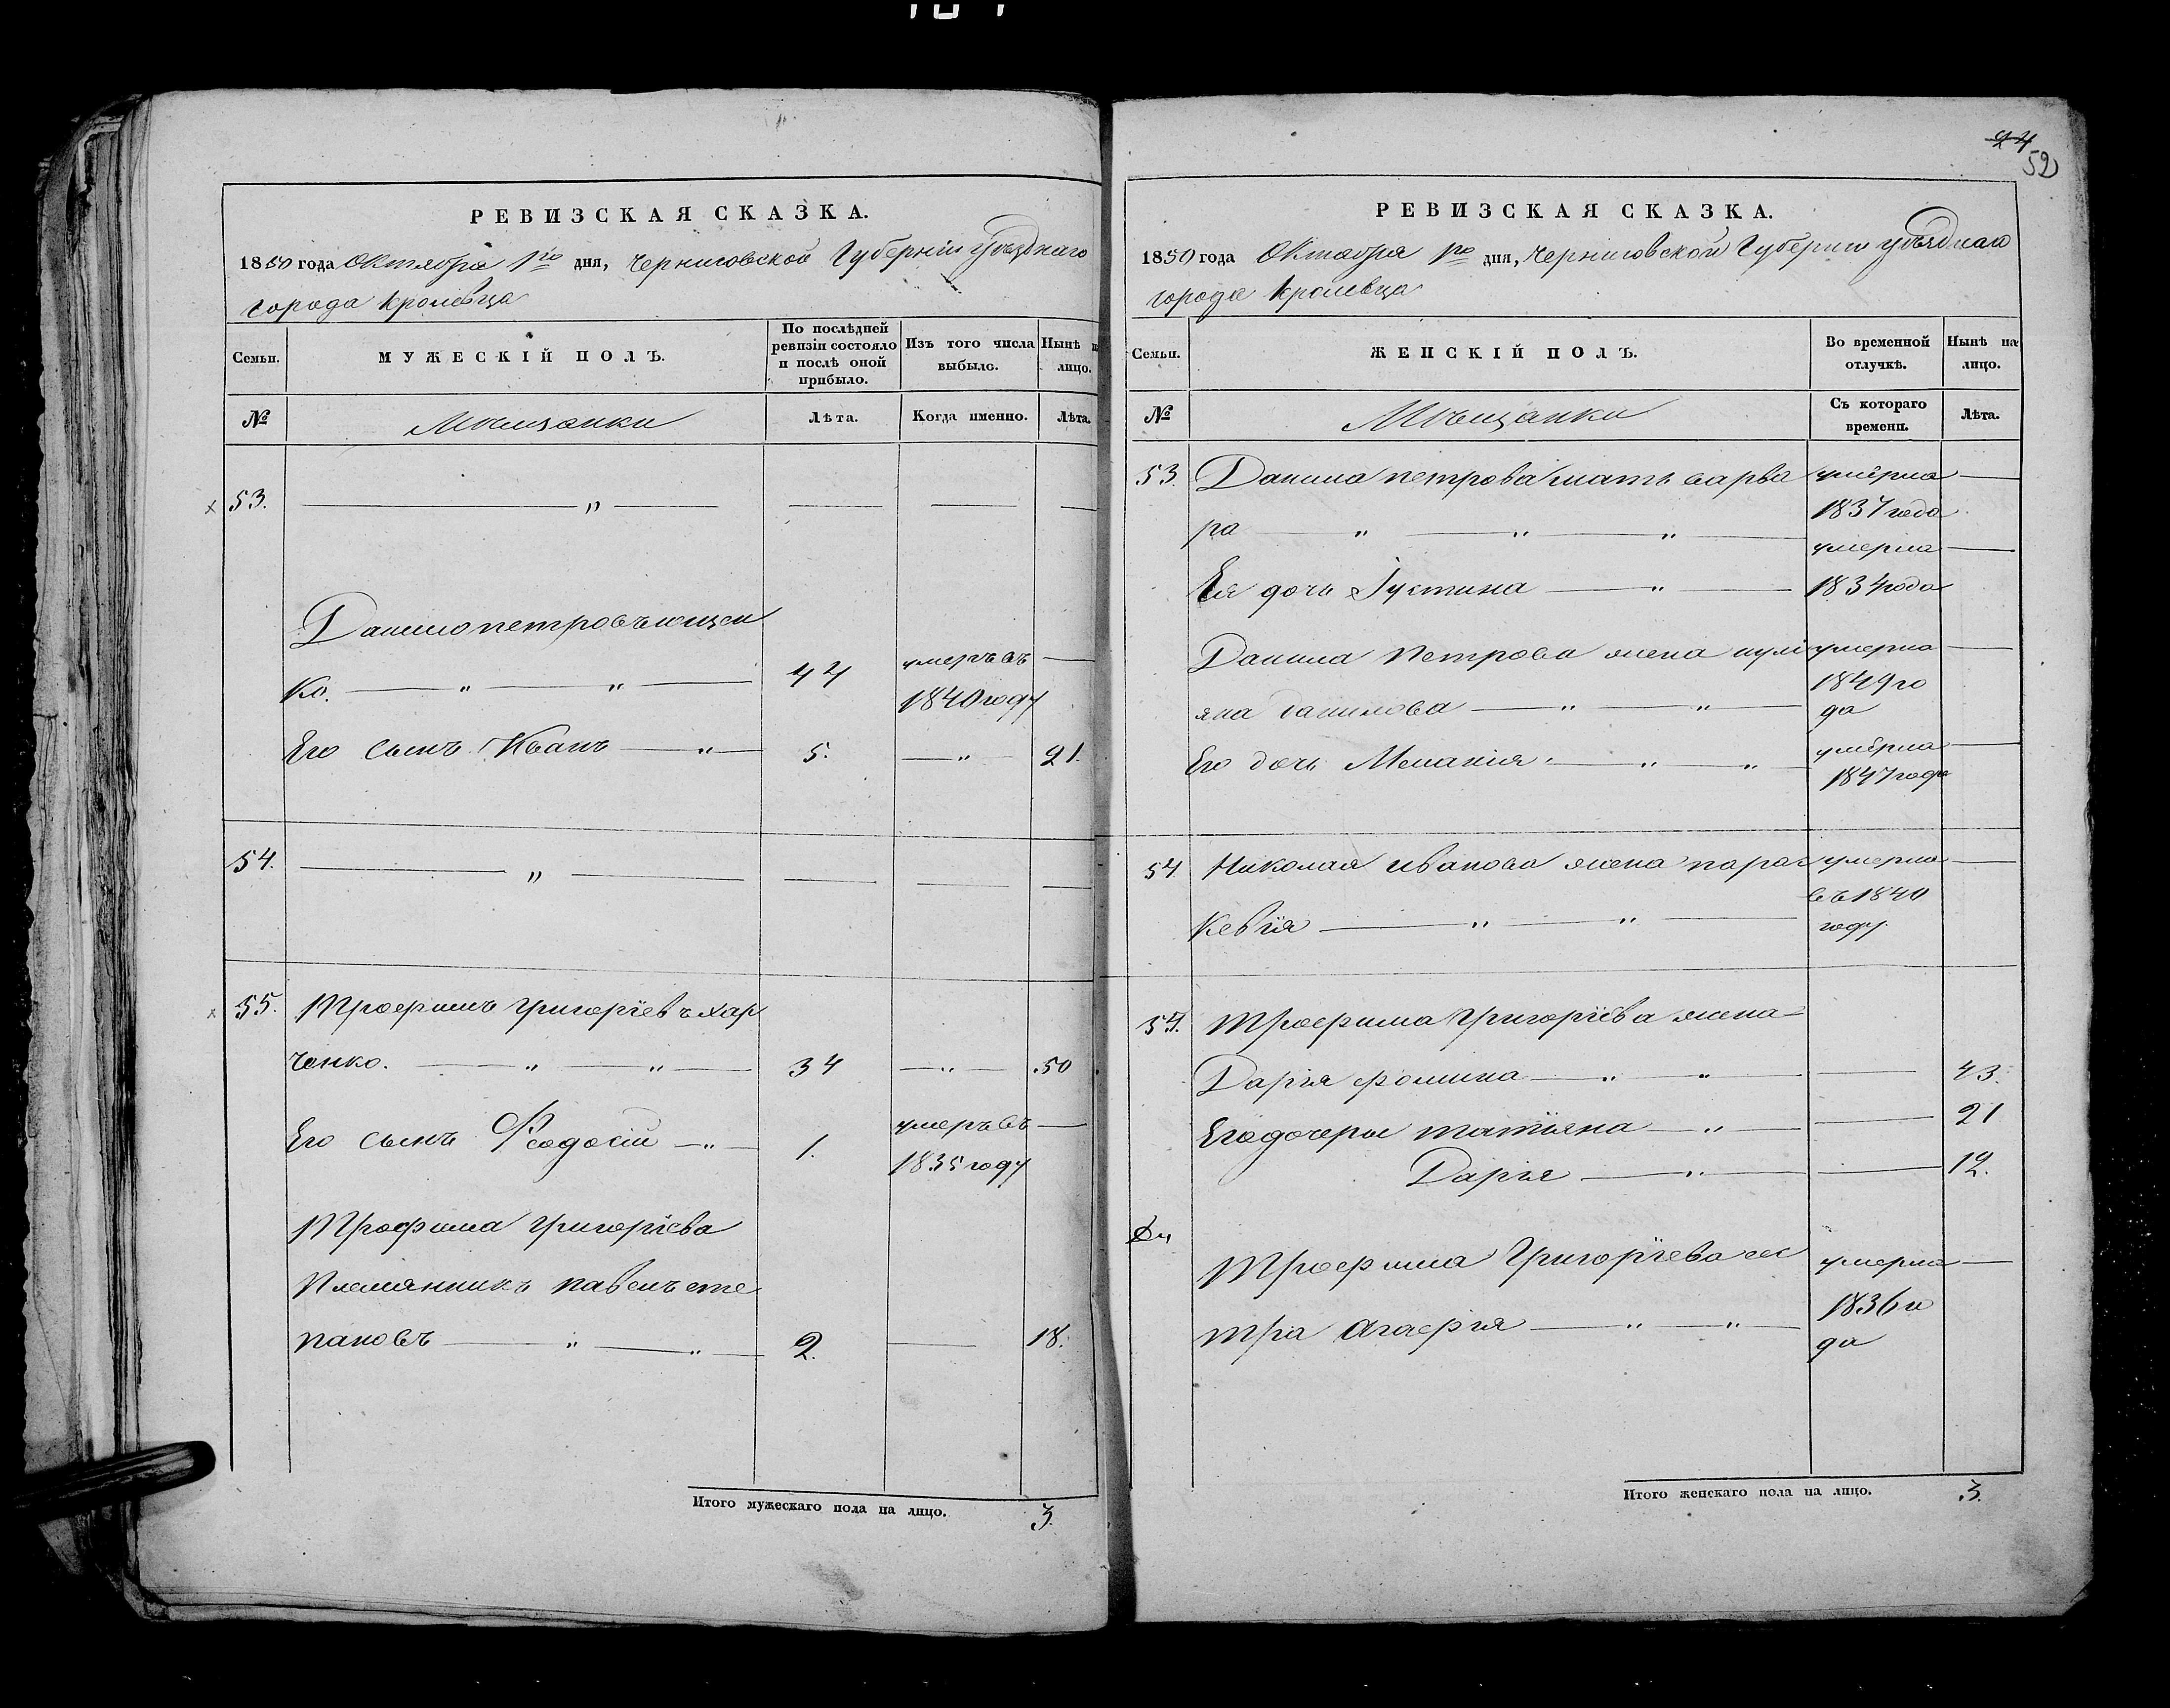 РЕВИЗСКАЯ СКАЗКА.
1850 года Октября 1го дня, Черниговской Губерніи уѣзднаго
города Кролевца
Семьи.
МУЖЕСКІЙ ПОЛЪ.
По послѣдней ревизіи состояло и послѣ оной прибыло.
Изъ того числа выбыло.
Нынѣ на лицо.
№
Мѣщанки
Лѣта.
Когда именно.
Лѣта.
53. — " — — — —
Данило петровъ
ко. — " — " — 44 умеръ въ —
1840 году
Его сынъ Иванъ — " — 5. — " — 21.
54. — " — — — —
55. Трофимъ Григоріевъ Хар
ченко. — " — " — 34 — " — 50
Его сынъ Феодосій — " — 1. умеръ въ —
1835 году
Трофима Григоріева
Племянникъ павелъ сте
пановъ — " — " — 2. — 18.
Итого мужескаго пола на лицо. 3.
24
52
РЕВИЗСКАЯ СКАЗКА.
1850 года Октября 1го дня, Черниговской Губерніи уѣзднаго
города Кролевца
Семьи.
ЖЕНСКІЙ ПОЛЪ.
Во временной отлучкѣ.
Нынѣ на лицо.
№
Мѣщанки
Съ котораго времени.
Лѣта.
53. Данила петрова мать варва умерла —
1837 года
ра — " — " — " —
умерла —
Ея дочь Іустина — " — 1834 года
Данила Петрова жена иулі умерла —
1849 го
яна Данилова — " — " — да
Его дочь Меланія — " — " умерла —
1847 года
54. Николая иванова жена парас умерла —
въ 1840
кевія — " — " — году.
55. Трофима Григоріева жена
Дарія фомина — " — " — — 43.
Его дочери татіяна — " — — 21
Дарія — " — — 12.
Трофима Григоріева сес умерла —
1836 го
тра Агафія — " — " — да
Итого женскаго пола на лицо. 3.